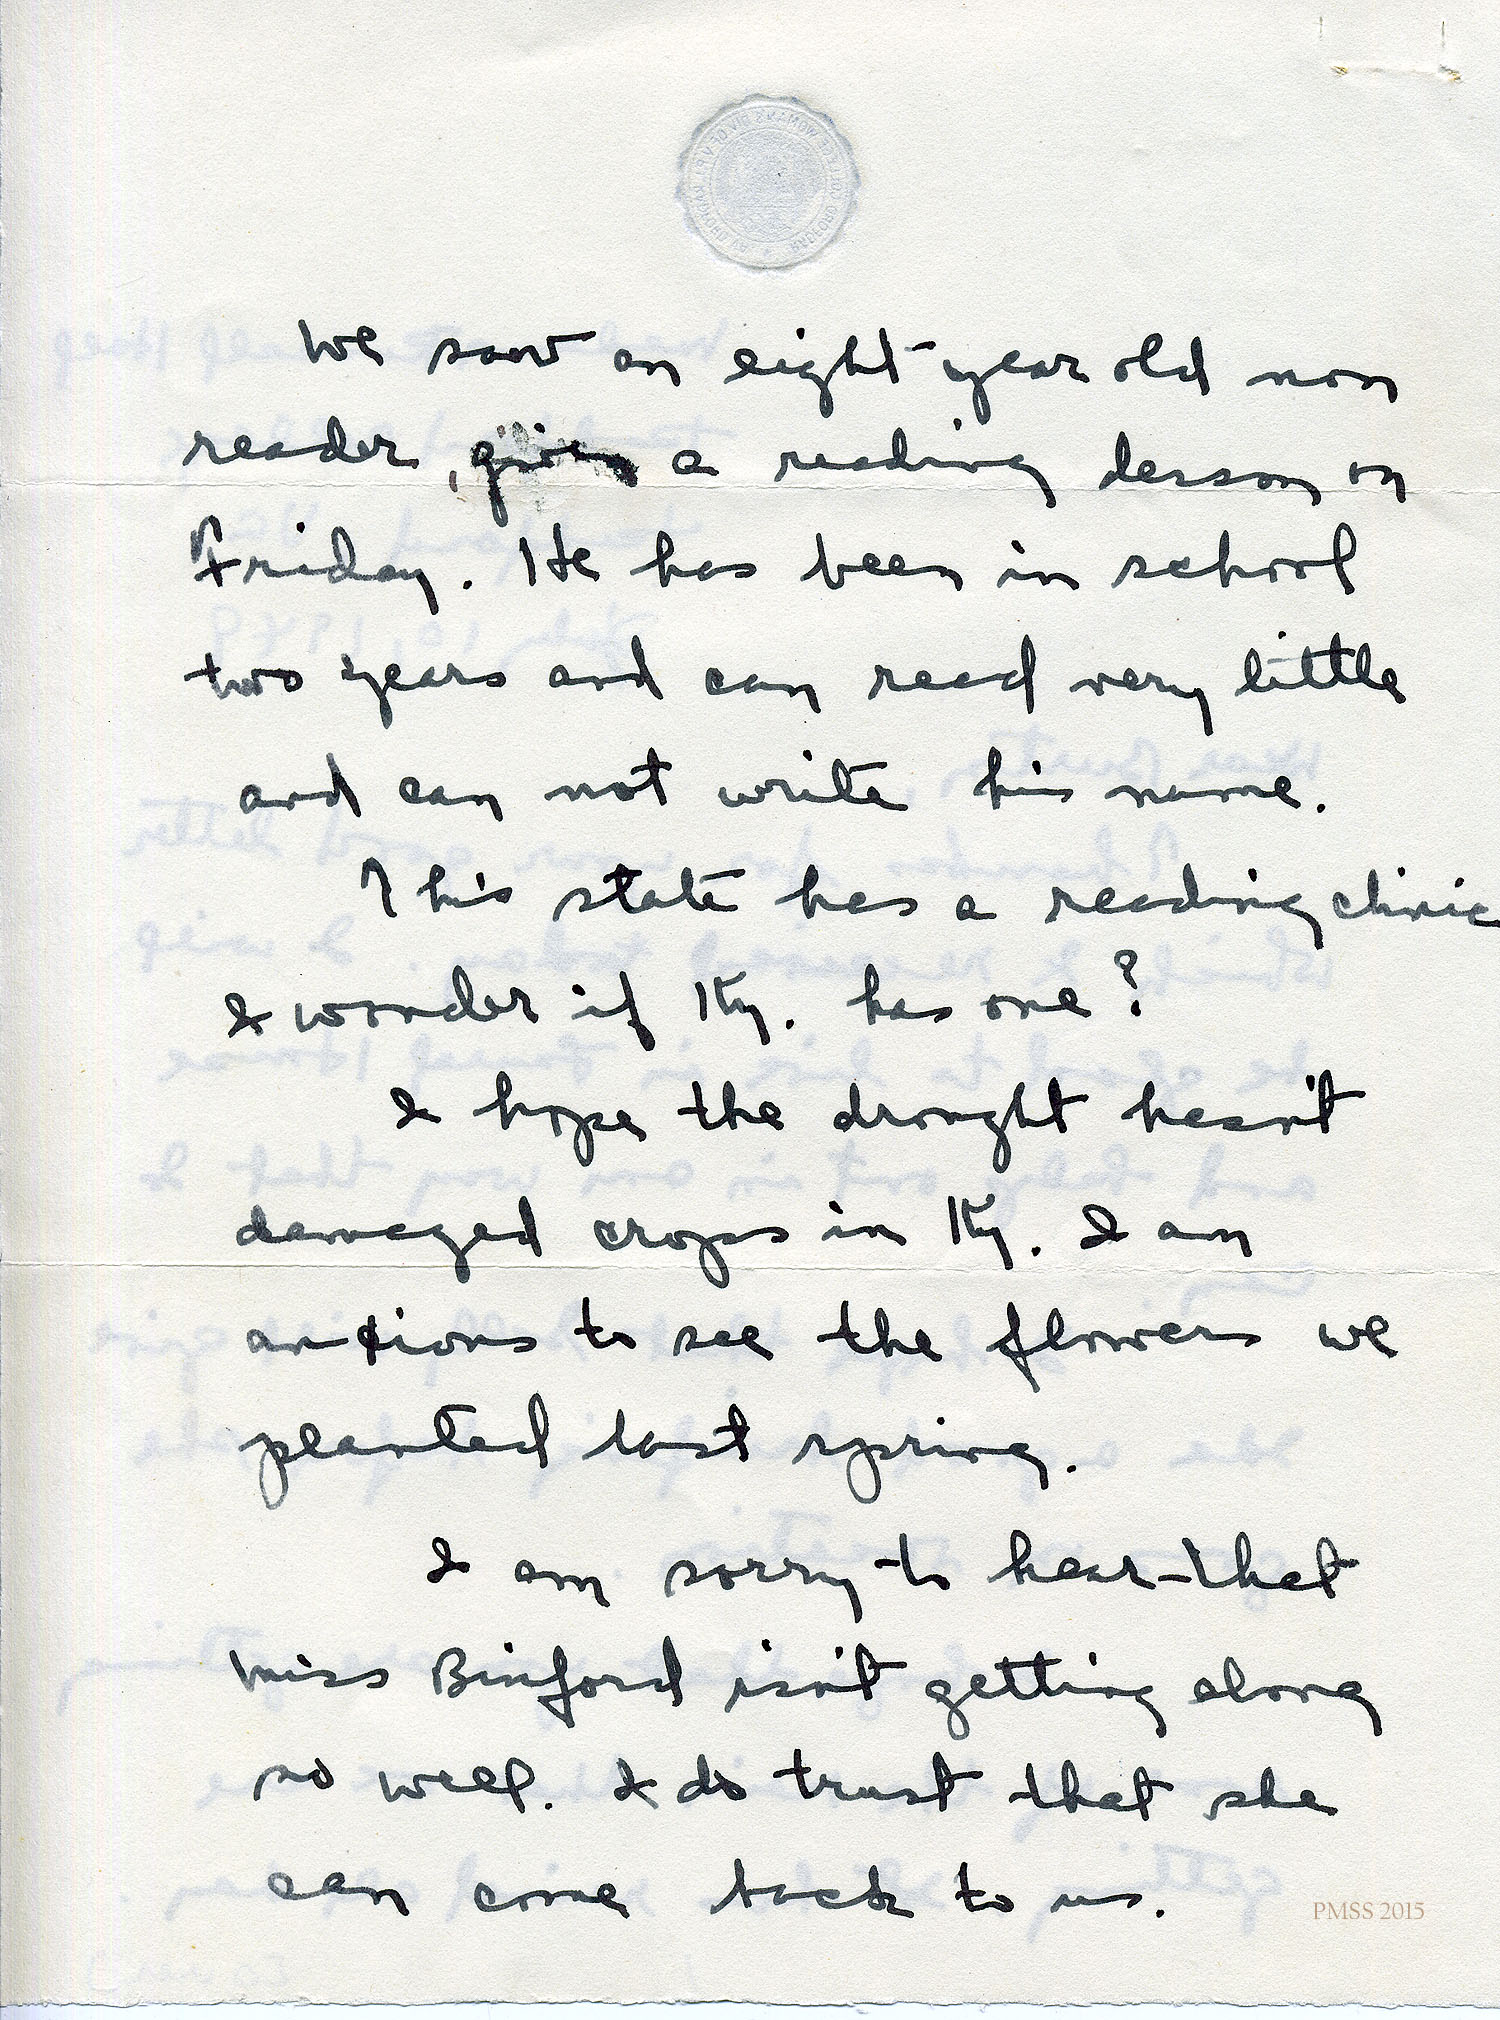 We saw an eight year old non
reader, given a reading lesson on
Friday. He has been in school
two years and can read very little
and can not write his name.
This state has a reading clinic
I wonder if Ky. has one?
I hope the drought hasn't
damaged crops in Ky. I am
anxtious to see the flowers we
planted last spring.
I am sorry to hear that
Miss Binford isn't getting along
so well. I do trust that she
can come back to us.
PMSS 2015